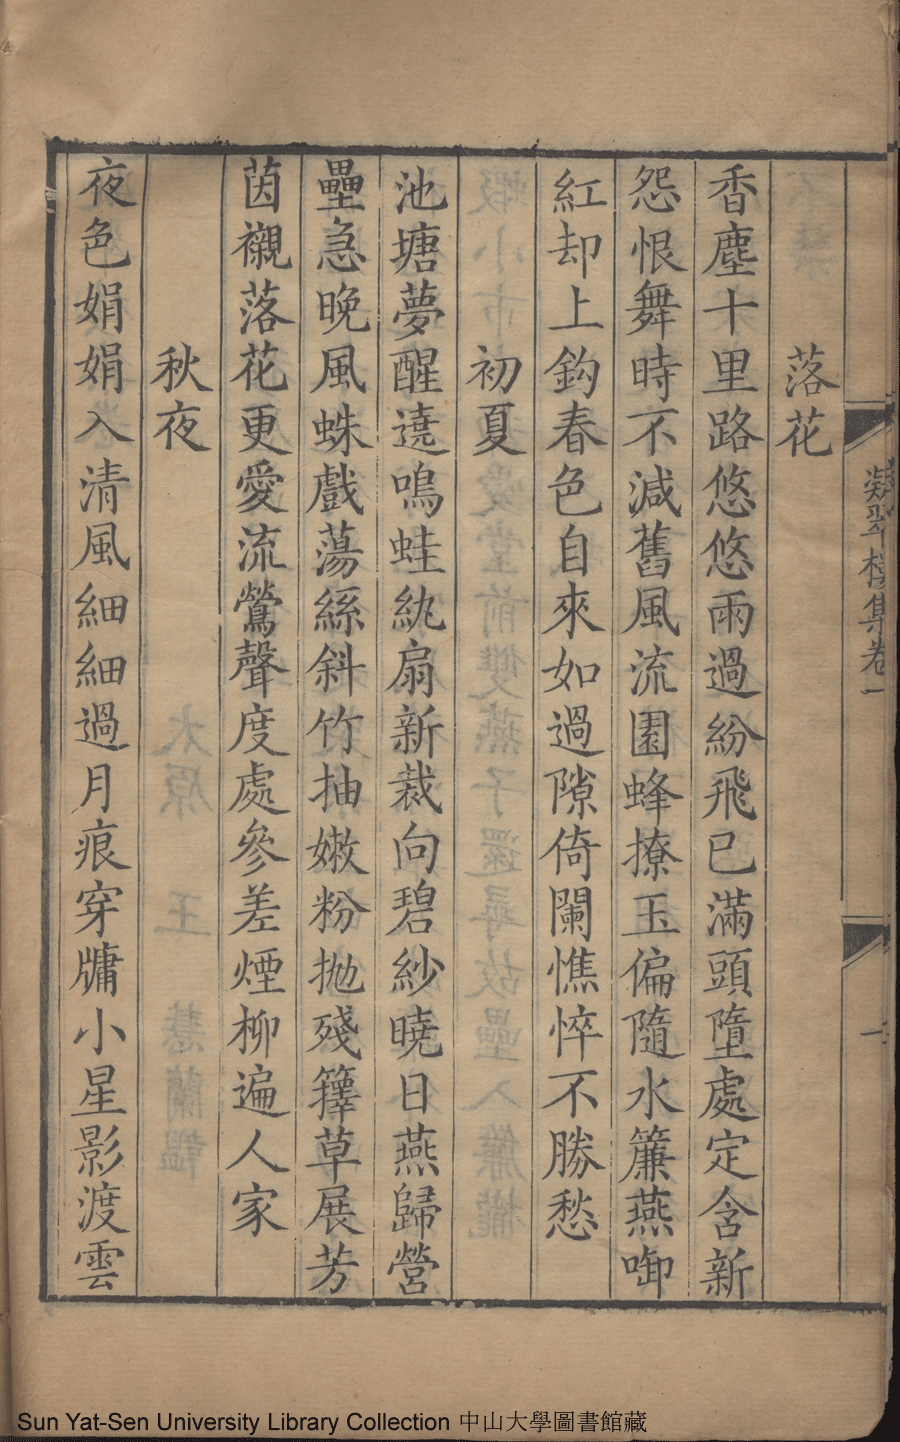 凝翠樓集卷一
一
落花
香塵十里路悠悠雨過紛飛已滿頭墮處定含新
怨恨舞時不減舊風流園蜂撩玉偏隨水簾燕啣
紅却上鈎春色自來如過隙倚闌憔悴不勝愁
初夏
池塘夢醒遶鳴蛙紈扇新裁向碧紗曉日燕歸營
壘急晚風蛛戲蕩絲斜竹抽嫩粉拋殘籜草展芳
茵襯落花更愛流鶯聲度處參差煙柳遍人家
秋夜
夜色娟娟入清風細細過月痕穿牗小星影渡雲
Sun Yat-Sen University Library Collection 中山大學圖書館藏